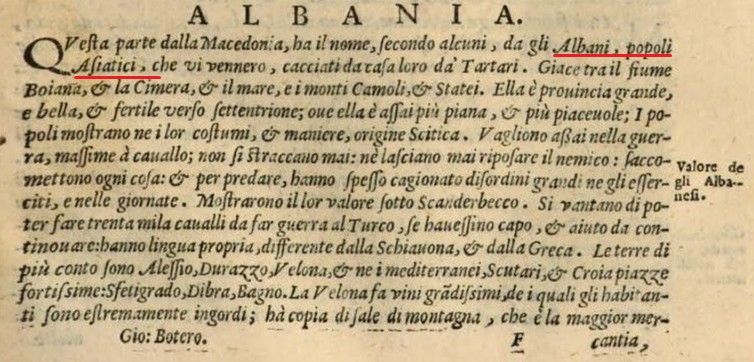 ALBANIA.
QVesta parte dalla Macedonia, ha il nome, secondo alcuni, da gli Albani, popoli
Asiatici, che vi vennero, cacciati da casa loro da' Tartari. Giace tra il fiume
Boiana, & la Cimera, & il mare, e i monti Camoli, & Statei. Ella è prouincia grande,
e bella, & fertile verso settentrione; oue ella è assai più piana, & più piaceuole; I po-
poli mostrano ne i lor costumi, & maniere, origine Scitica. Vagliono assai nella guer-
ra, massime à cauallo; non si straccano mai: nè lasciano mai riposare il nemico: sacco-
mettono ogni cosa: & per predare, hanno spesso cagionato disordini grandi ne gli esser-
citi, e nelle giornate. Mostrarono il lor valore sotto Scanderbecco. Si vantano di po-
ter fare trenta mila caualli da far guerra al Turco, se hauessino capo, & aiuto da con-
tinouare: hanno lingua propria, differente dalla Schiauona, & dalla Greca. Le terre di
più conto sono Alessio, Durazzo, Velona, & ne i mediterranei, Scutari, & Croia piazze
fortissime: Sfetigrado, Dibra, Bagno. La Velona fa vini grādissimi, de i quali gli habitan-
ti sono estremamente ingordi; hà copia di sale di montagna, che è la maggior mer-
Gio: Botero. F cantia,
Valore de
gli Alba-
nesi.